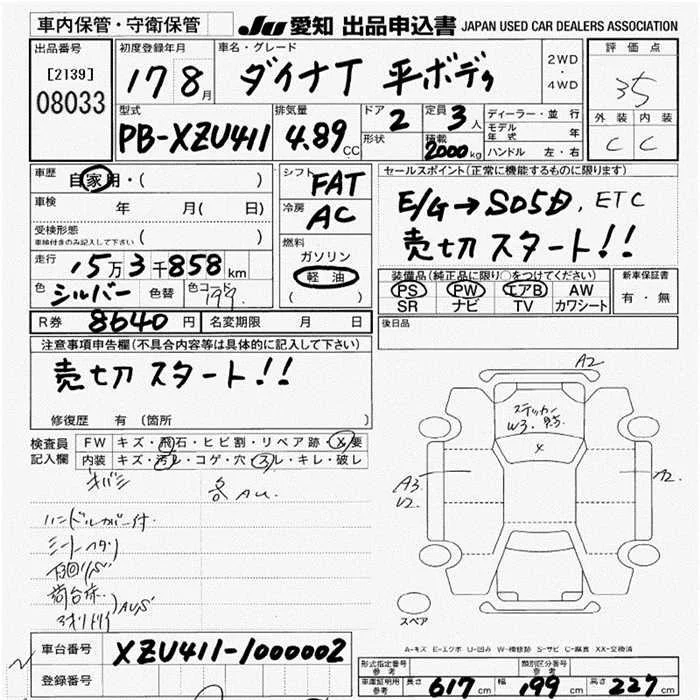 車内保管・守衛保管
JU 愛知 出品申込書 JAPAN USED CAR DEALERS ASSOCIATION
出品番号
[2139]
08033
初度登録年月
17 8月
車名・グレード
ダイナT 平ボディ
2WD
・
4WD
評価点
35
外装 内装
C C
型式
PB-XZU411
排気量
4.89 CC
ドア 2
形状
定員 3人
積載 2000kg
ディーラー・並行
モデル年式 年
ハンドル 左・右
車歴
自家用・( )
車検 年 月( 日)
受検形態
車検付きのみ記入して下さい ( )
走行 15万3千858km
色 シルバー 色替 色コード 199
シフト FAT
冷房 AC
燃料
ガソリン
軽油
( )
セールスポイント(正常に機能するものに限ります)
E/G→S05D, ETC
売切スタート!!
装備品(純正品に限り○をつけてください)
PS PW エアB AW
SR ナビ TV カワシート
新車保証書
有・無
R券 8640円 名変期限 月 日
後日品
注意事項申告欄(不具合内容等は具体的に記入して下さい)
売切スタート!!
修復歴 有 (箇所 )
検査員記入欄
FW キズ・飛石・ヒビ割・リペア跡・X要
内装 キズ・汚レ・コゲ・穴・スレ・キレ・破レ
キバミ
各AU.
ハンドルカバー付
荷台床.
A2
ステッカー
W3.
X
A3
U2.
A2.
スペア
A-キズ E-エクボ U-凹み W-補修跡 S-サビ C-腐食 XX-交換済
車台番号 XZU411-1000002
登録番号
形式指定番号 参考
類別区分番号 参考
車庫証明用 参考 長さ 617cm 幅 199cm 高さ 227cm